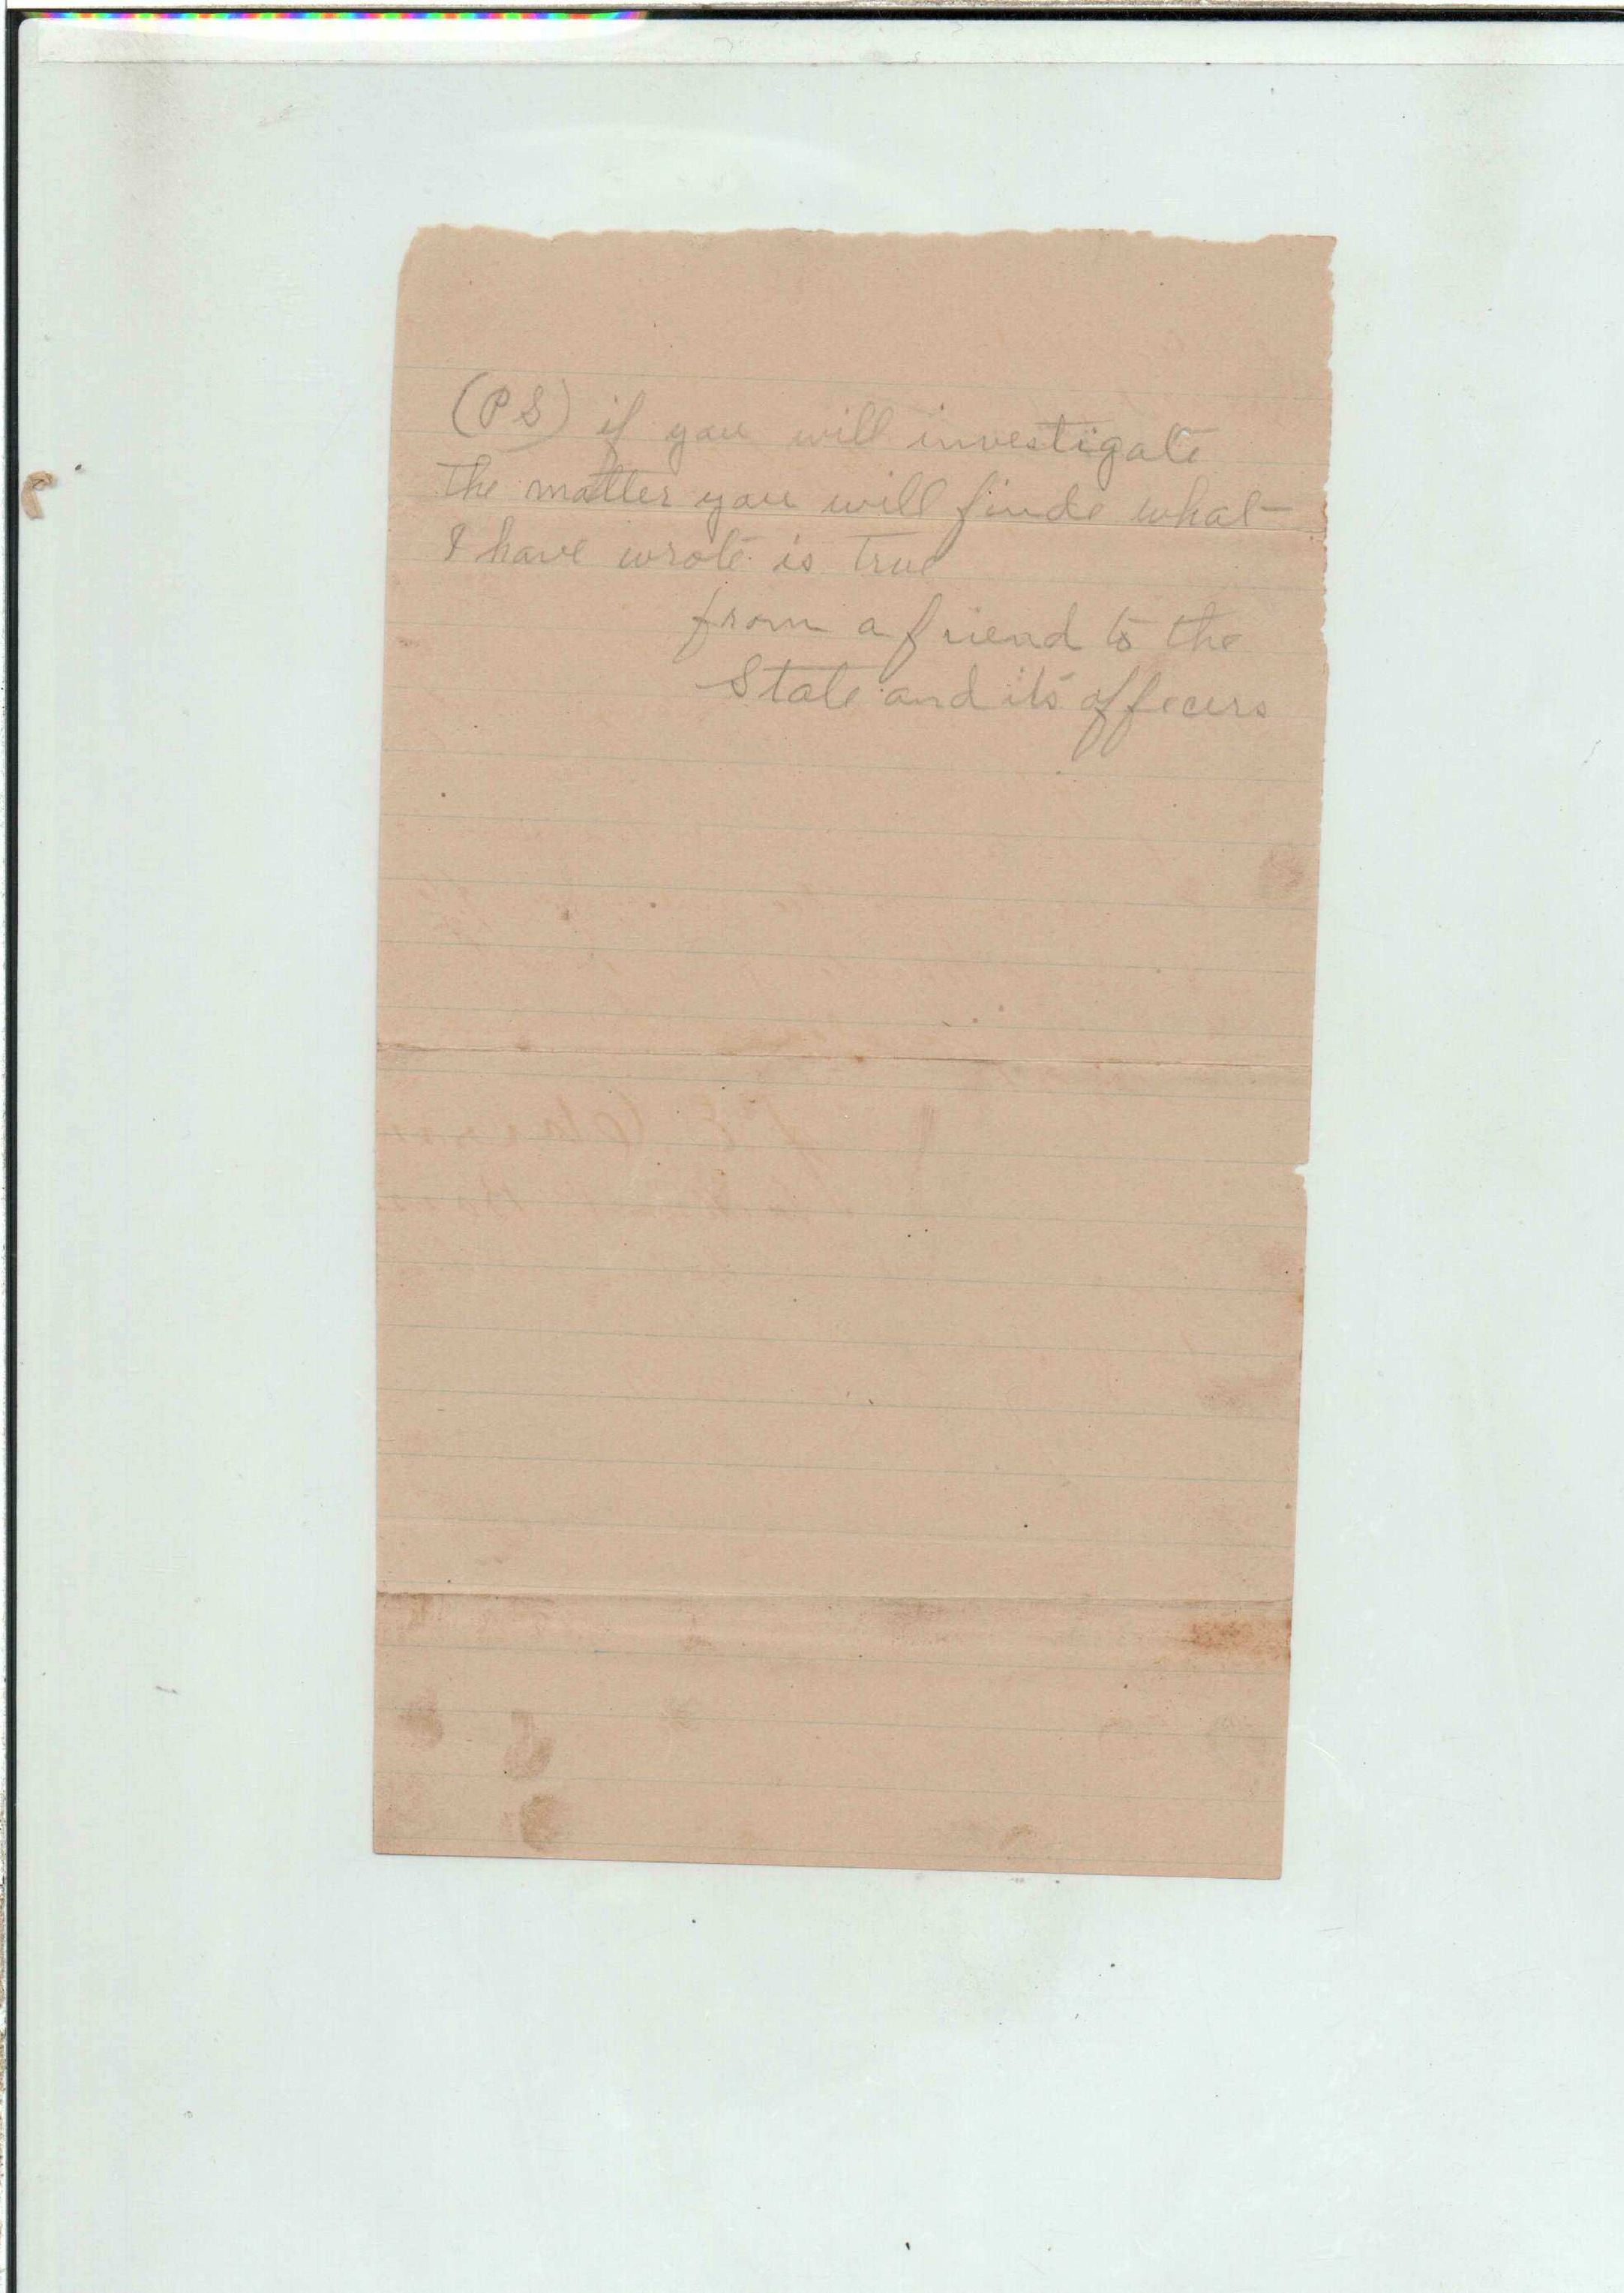 (PS) if you will investigate
the matter you will finde what
I have wrote is true
from a friend to the
State and its officers